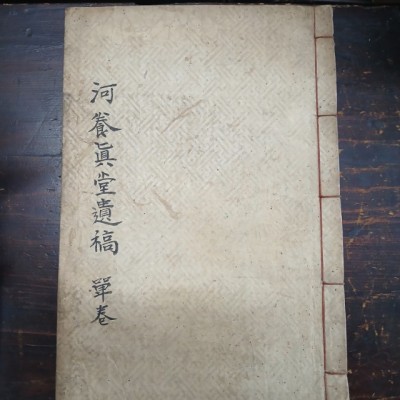 河養眞堂遺稿 單卷